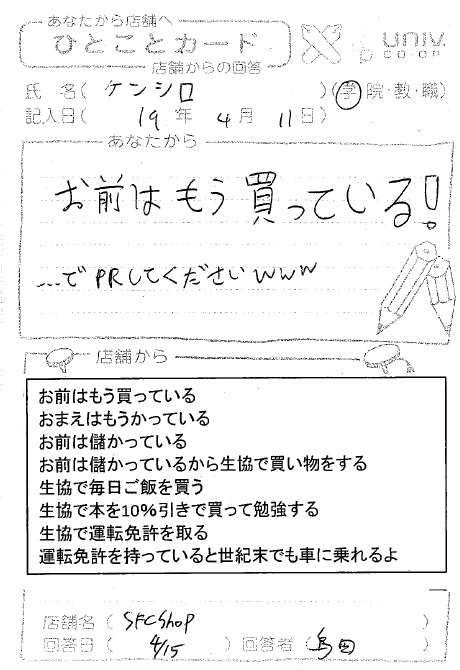 あなたから店舗へ
ひとことカード
店舗からの回答
univ.
CO-OP
氏 名( ケンシロ )(学院・教・職)
記入日( 19 年 4 月 11 日)
あなたから
お前はもう買っている!
...でPRしてくださいwww
店舗から
お前はもう買っている
おまえはもうかっている
お前は儲かっている
お前は儲かっているから生協で買い物をする
生協で毎日ご飯を買う
生協で本を10%引きで買って勉強する
生協で運転免許を取る
運転免許を持っていると世紀末でも車に乗れるよ
店舗名( SFC Shop )
回答日( 4/15 )回答者( 島田 )